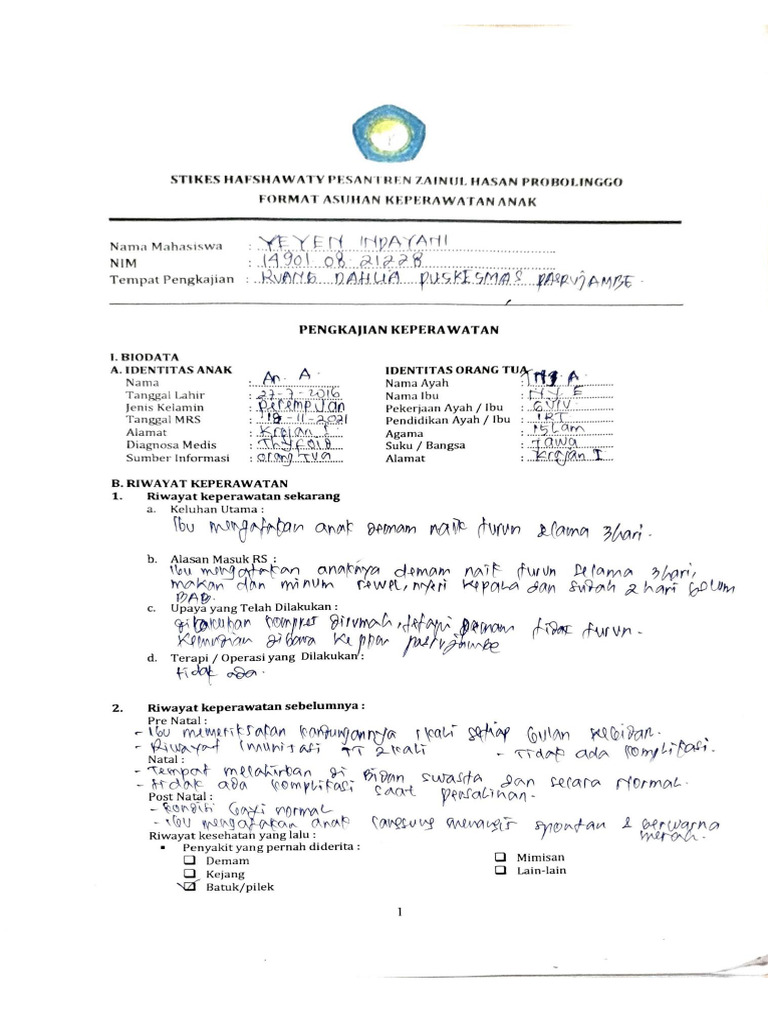 STIKES HAFSHAWATY PESANTREN ZAINUL HASAN PROBOLINGGO
FORMAT ASUHAN KEPERAWATAN ANAK
Nama Mahasiswa : YEYEN INDAYANI
NIM : 14901 08 21228
Tempat Pengkajian : RUANG DAHLIA PUSKISMAS PASRUJAMBE.
PENGKAJIAN KEPERAWATAN
I. BIODATA
A. IDENTITAS ANAK
Nama : An. A
Tanggal Lahir : 27-7-2016
Jenis Kelamin : Perempuan
Tanggal MRS : 18-11-2021
Alamat : Krajan I
Diagnosa Medis : Thyfoid
Sumber Informasi : orang Tua
IDENTITAS ORANG TUA
Nama Ayah : A
Nama Ibu : NY. E
Pekerjaan Ayah / Ibu :
Pendidikan Ayah / Ibu : IRT
Agama : Islam
Suku / Bangsa : Jawa
Alamat : Krajan I
B. RIWAYAT KEPERAWATAN
1. Riwayat keperawatan sekarang
a. Keluhan Utama :
Ibu mengatakan anak demam naik turun selama 3 hari.
b. Alasan Masuk RS :
Ibu mengatakan anaknya demam naik turun selama 3 hari,
makan dan minum rewel, nyeri kepala dan sudah 2 hari belum
BAB.
c. Upaya yang Telah Dilakukan :
dilakukan kompres dirumah, tetapi demam tidak turun.
Kemudian dibawa ke pasrujambe
d. Terapi / Operasi yang Dilakukan :
tidak ada.
2. Riwayat keperawatan sebelumnya :
Pre Natal :
- Ibu memeriksakan kandungannya 1 kali setiap bulan kebidan.
- Riwayat Imunisasi TT 2 kali - Tidak ada komplikasi.
Natal :
- Tempat melahirkan di Bidan swasta dan secara Normal.
- tidak ada komplikasi saat persalinan.
Post Natal :
- kondisi bayi normal
- Ibu mengatakan anak langsung menangis spontan & berwarna
merah.
Riwayat kesehatan yang lalu :
▪ Penyakit yang pernah diderita :
☐ Demam
☐ Kejang
☑ Batuk/pilek
☐ Mimisan
☐ Lain-lain
1